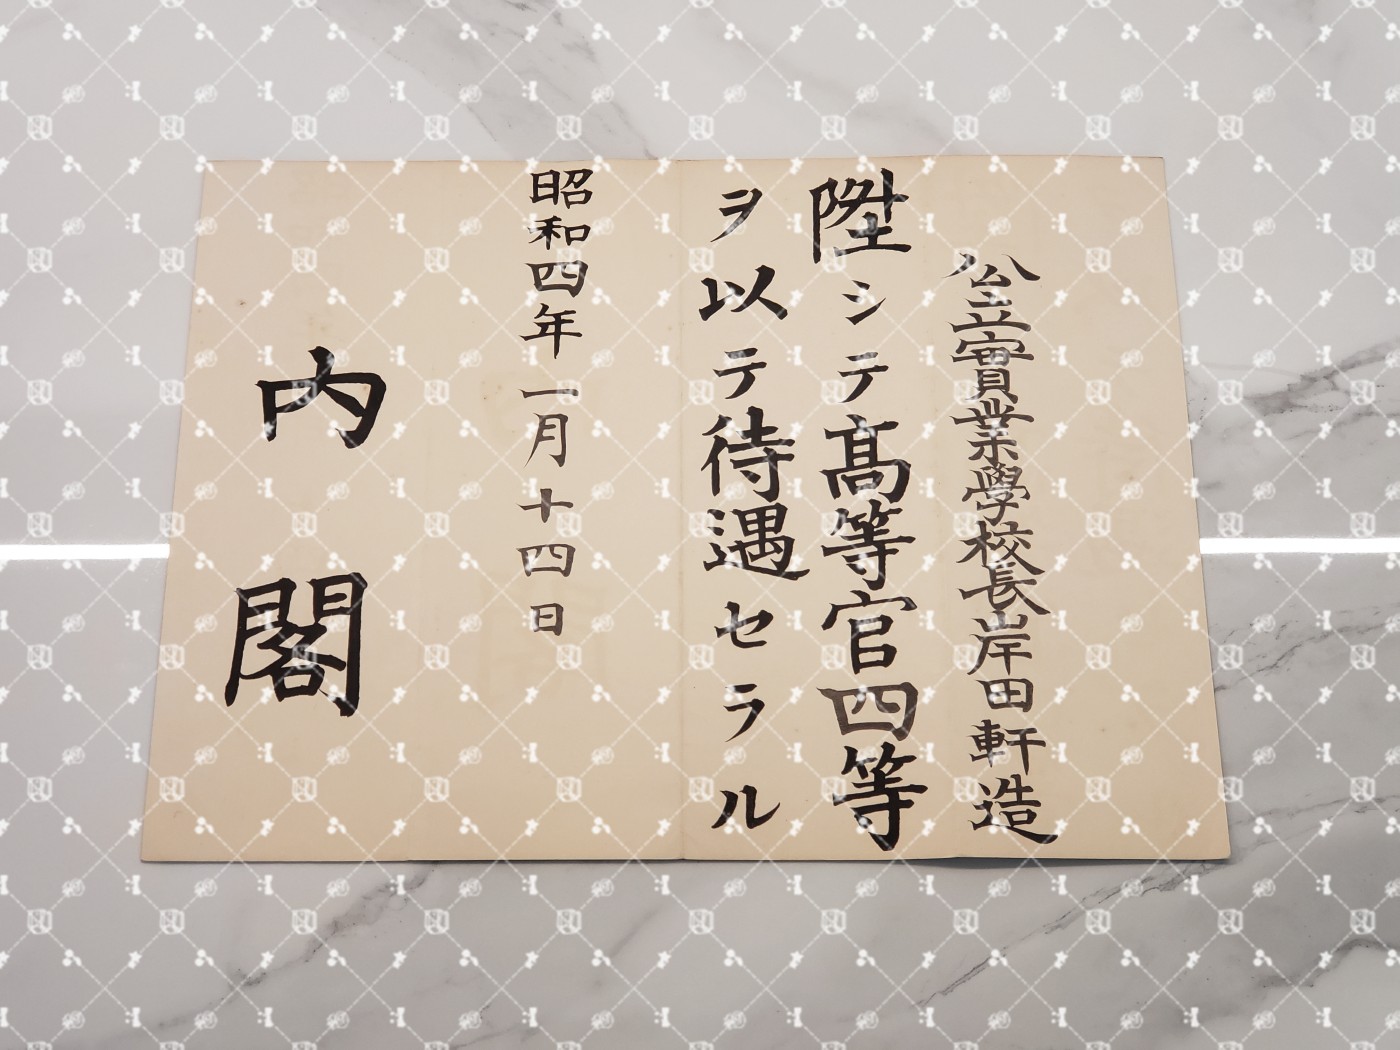 公立實業學校長岸田軒造
陞シテ高等官四等
ヲ以テ待遇セラル
昭和四年一月十四日
內閣